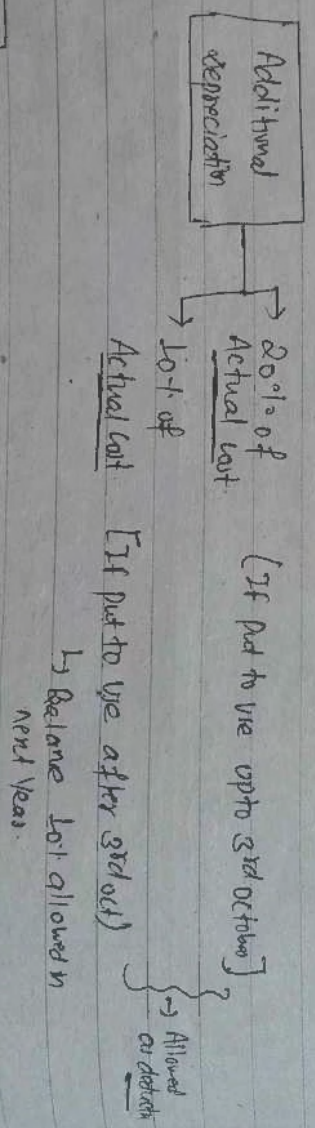 Additional
depreciation
→ 20% of
Actual cost. (If put to use upto 3rd october]
→ 10% of
Actual cost [If put to use after 3rd oct)
↳ Balance 10% allowed in
next year.
} → Allowed
as deductn